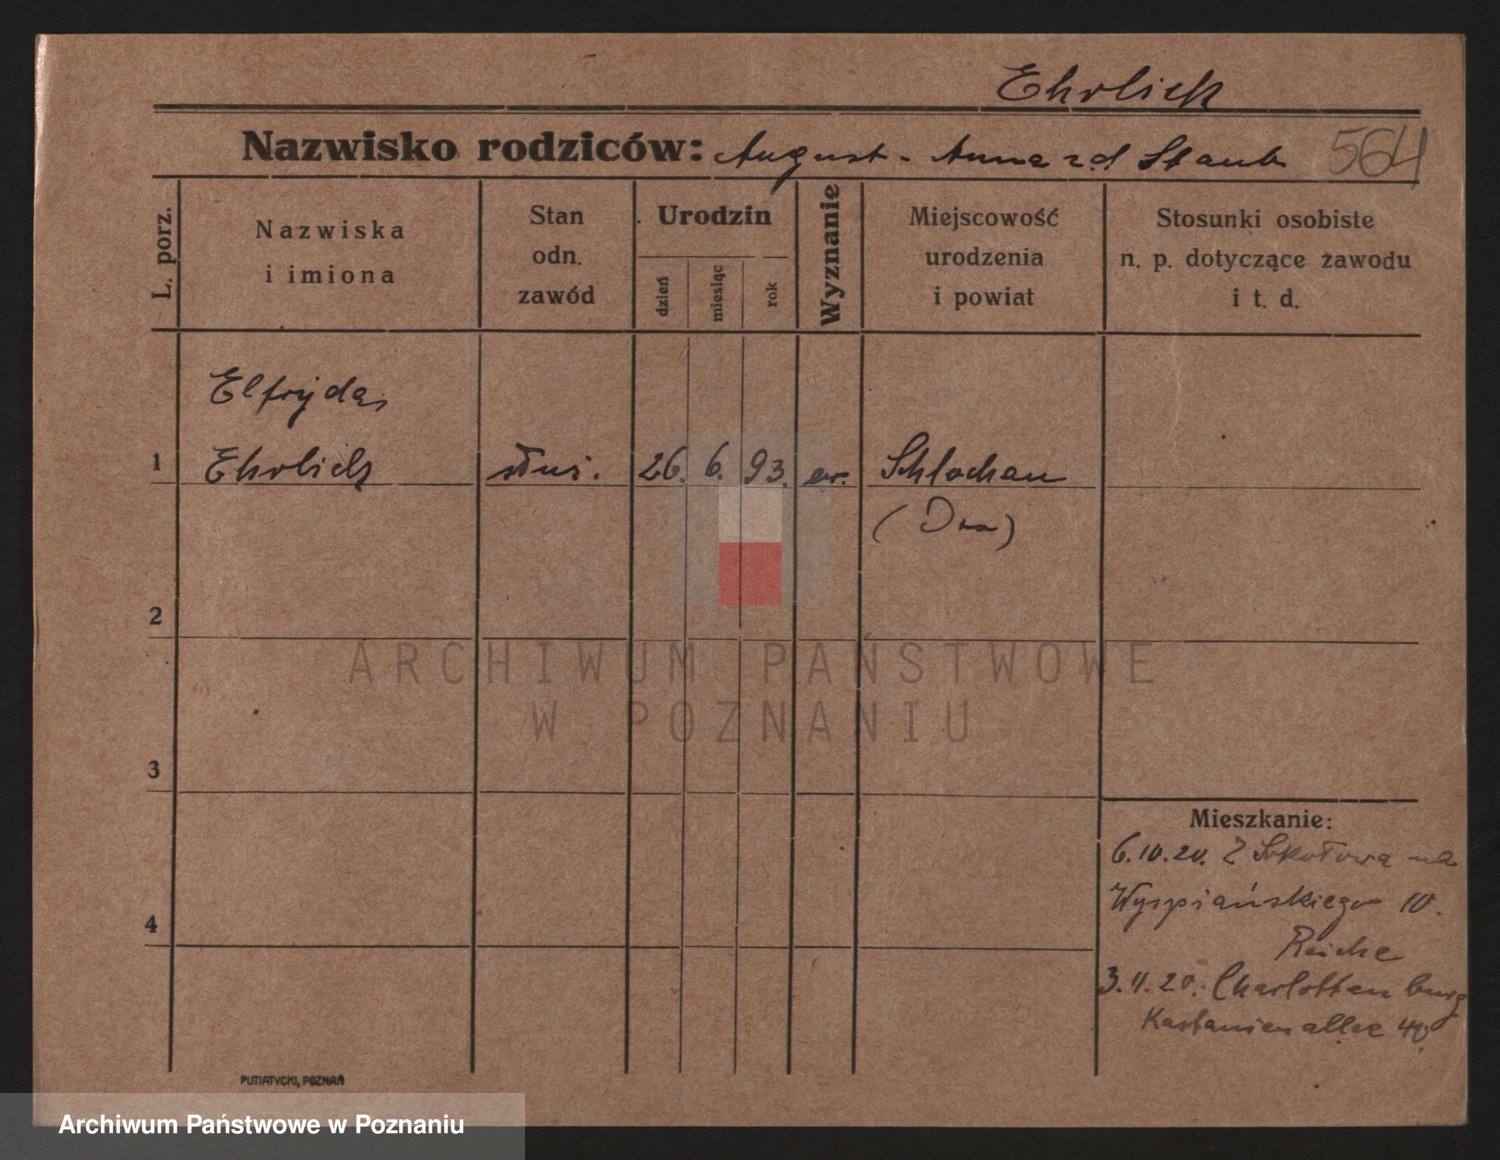 Ehrlich
Nazwisko rodziców: August - Anna z d Staub 564
L. porz.
Nazwiska
i imiona
Stan
odn.
zawód
Urodzin
dzień
miesiąc
rok
Wyznanie
Miejscowość
urodzenia
i powiat
Stosunki osobiste
n. p. dotyczące zawodu
i t. d.
Elfryda,
1 Ehrlich służ. 26. 6. 93. ew. Schlochau
2
ARCHIWUM PAŃSTWOWE
W POZNANIU
3
Mieszkanie:
6.10.20. Z Sokołowa na
Wyspiańskiego 10.
4
Reiche
3.11.20. Charlottenburg
Kastanienallee 40
PUTIATYCKI, POZNAŃ
Archiwum Państwowe w Poznaniu